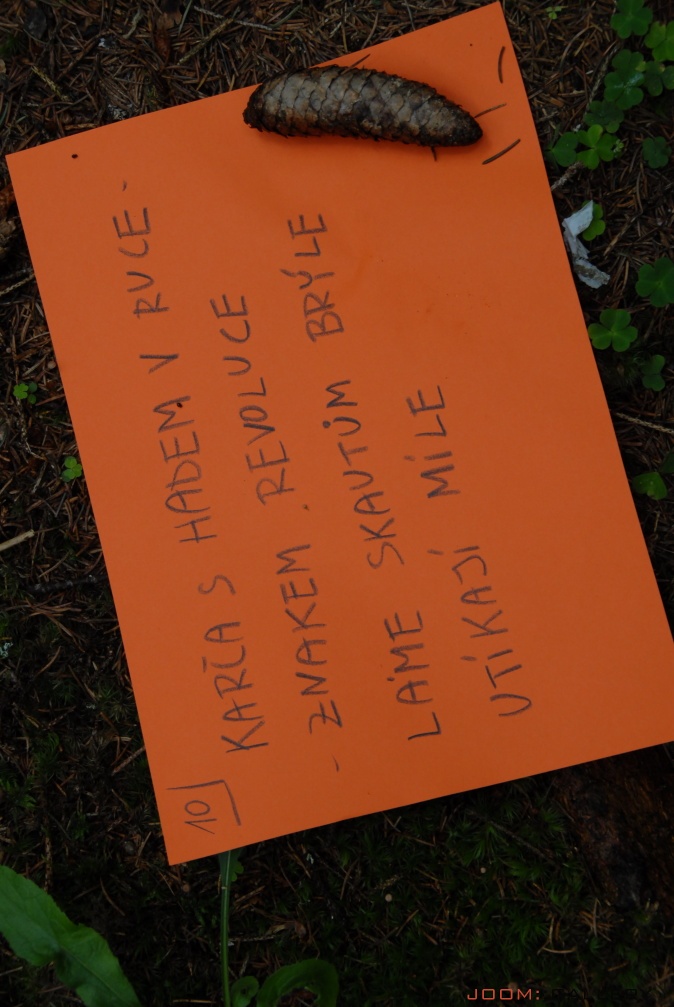 10
KARLA S HADEM V RUCE -
- ZNAKEM REVOLUCE
LÁME SKAUTŮM BRÝLE
UTÍKAJÍ MÍLE
JOOM: